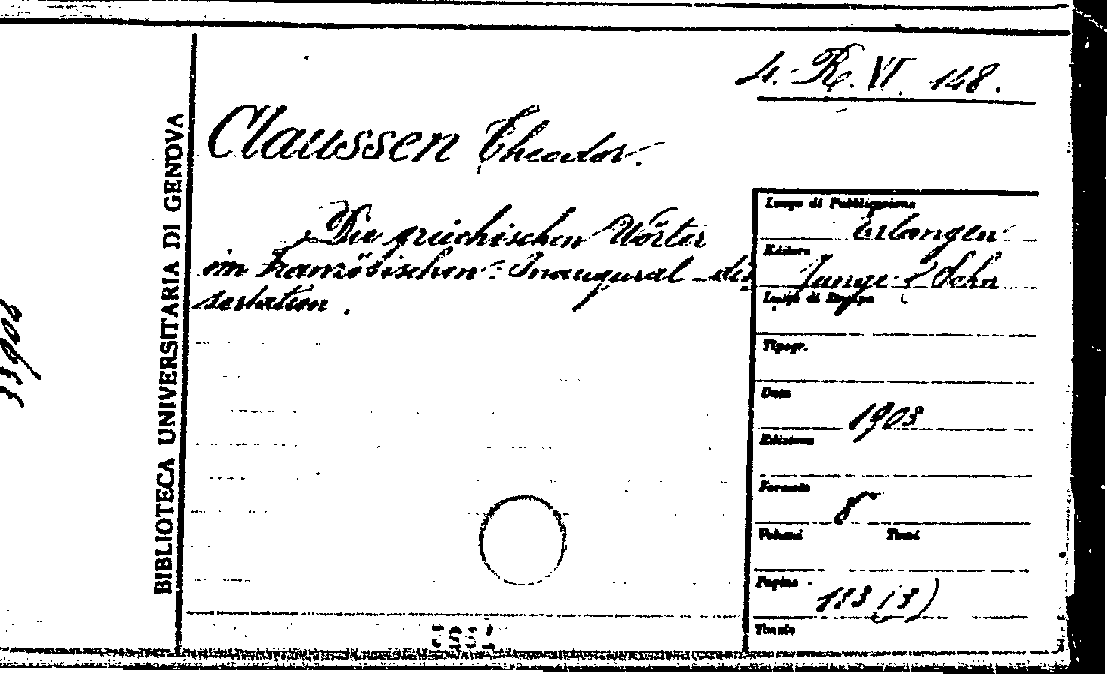 4. R. VI. 148.
Claussen Theodor.
Die griechischen Wörter
im Französischen - Inaugural-dis
sertation.
BIBLIOTECA UNIVERSITARIA DI GENOVA
33904
Luogo di Pubblicazione
Erlangen
Editore
Junge & Sohn
Luogo di Stampa
Tipogr.
Data
1903
Edizione
Formato
8°
Volumi Tomi
Pagine
183 (3)